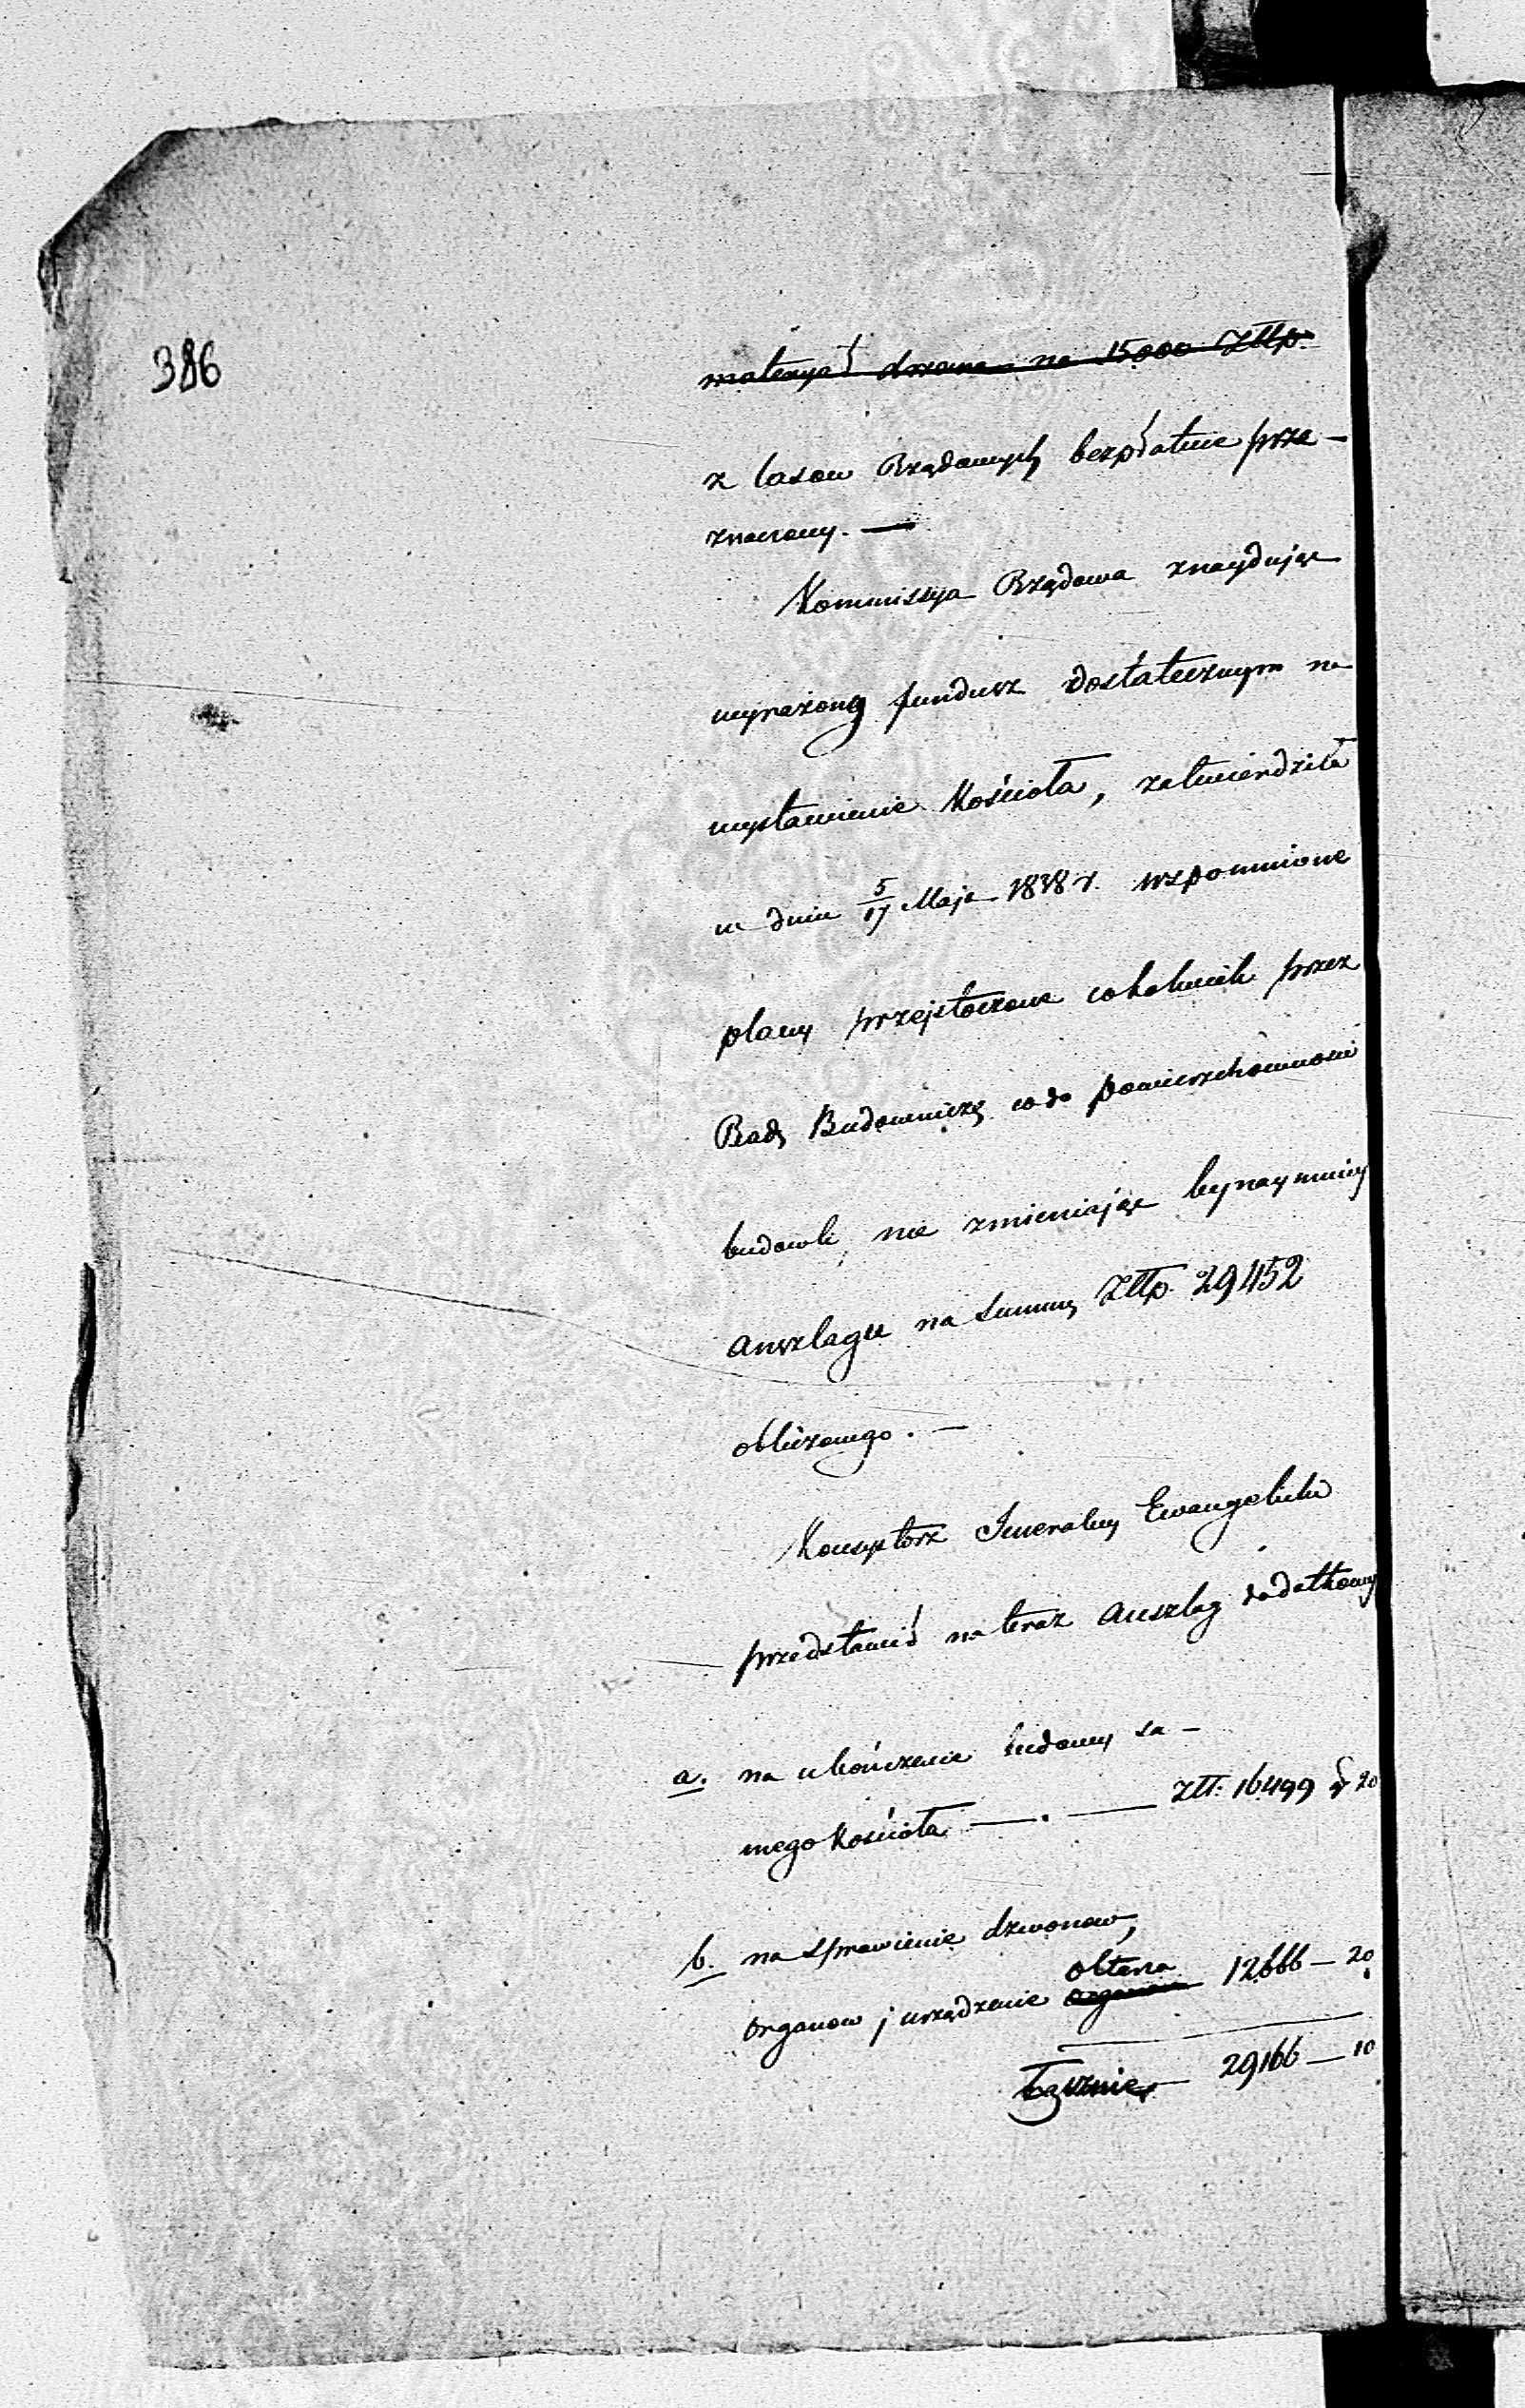 386
materyał drzewa na 15000 Złłp.
z lasow Rządowych bezpłatnie prze-
znaczony. —
Kommissya Rządowa znayduiąc
wyrażony fundusz dostatecznym na
wystawienie Kościoła, zatwierdziła
w dniu 5/17 Maja 1838 r. wspomnione
plany przeistoczone cokolwiek przez
Radę Budowniczą co do powierzchowności
budowli, nie zmieniając bynaymniey
Anszlagu na summę Złłp. 29452
obliczonego. —
Konsystorz Jeneralny Ewangelicki
przedstawił na teraz Anszlag dodatkowy
a. na ukończenie budowy sa-
mego Kościoła —.— Złł. 16499 gr 20
b. na sprawienie dzwonow,
organow i urządzenie organow ołtarza 12666 — 20
Łącznie — 29166 — 10